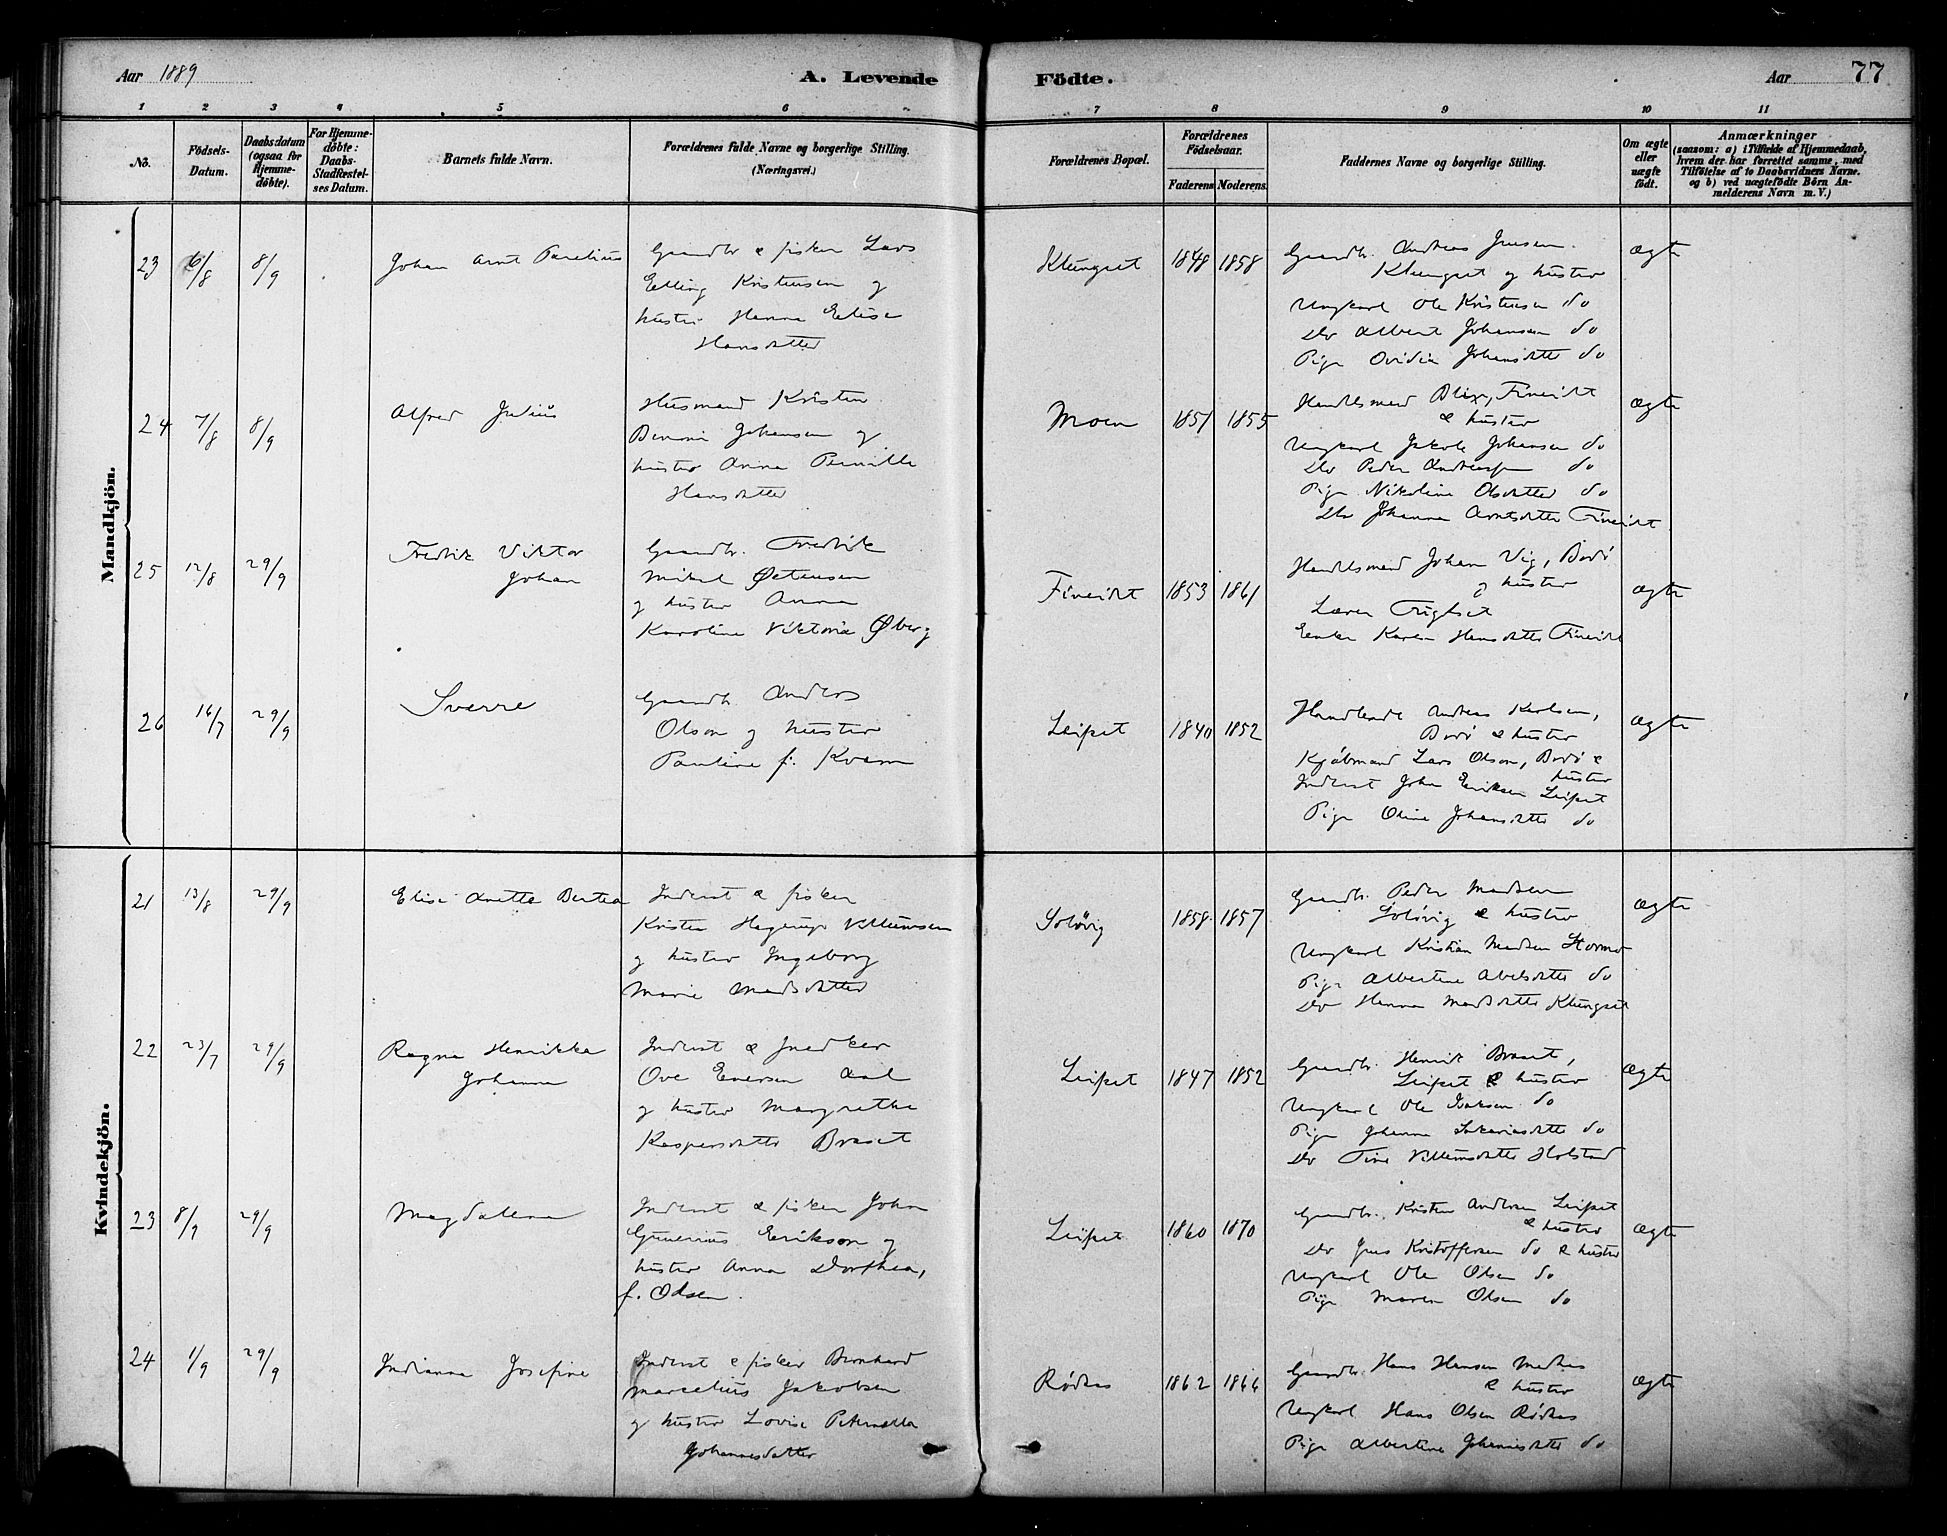 Aar 1889
A. Levende Födte.
Aar 77
1 2 3 4 5 6 7 8 9 10 11
No.
Födsels-Datum.
Daabsdatum (ogsaa for Hjemmedöbte).
For Hjemmedöbte: Daabs-Stadfæstelses Datum.
Barnets fulde Navn.
Forældrenes fulde Navne og borgerlige Stilling. (Næringsvei.)
Forældrenes Bopæl.
Forældrenes Födselsaar.
Faderens Moderens
Faddernes Navne og borgerlige Stilling.
Om ægte eller uægte födt.
Anmærkninger
(saasom: a) i Tilfælde af Hjemmedaab, hvem der har forrettet samme, med Tilföielse af to Daabsvidners Navne. og b) ved uægtefödte Börn Anmelderens Navn m. V.)
Mandkjön.
23 6/8 8/9 Johan Arnt Parelius
Gaardbr & fisker Lars
Elling Kristensen og
hustru Hanna Elise
Hansdatter
Klungset 1848 1858
Gaardbr. Andreas Jensen
Klungset og hustru
Ungkarl Ole Kristensen do
Do Albert Johansen do
Pige Ovidia Johansdatter do
ægte
24 7/8 8/9 Alfred Julius
Husmand Kristen
Benoni Johansen og
hustru Anna Pernille
Hansdatter
Moen 1851 1855
Handelsmand Blix, Fineidet
& hustru
Ungkarl Jakob Johansen do
Do Peder Andreassen do
Pige Nikoline Olsdatter do
Do Johanna Arntsdatter Fineidet
ægte
25 12/8 29/9 Fredrik Viktor
Johan
Gaardbr. Fredrik
Mikal Østensen
og hustru Anna
Karoline Viktoria Øberg
Fineidet 1853 1861
Handelsmand Johan Vig, Bodø
og hustru
Lærer Fuglset
Enke Karen Hansdatter Fineidet
ægte
26 16/7 29/9 Sverre
Gaardb Anders
Olson og hustru
Pauline f. Kvam
Leifset 1840 1852
Handlende Andreas Karlsen,
Bodø & hustru
Kjøbmand Lars Olson, Bodø &
hustru
Inderst John Eriksen Leifset
Pige Oline Johansdatter do
ægte
Kvindekjön.
21 13/8 29/9 Elise Anetta Bertea
Inderst & fisker
Kristen Hagerup Villumsen
og hustru Ingeborg
Marie Madsdatter
Soløvig 1858 1857
Gaardbr. Peder Madsen
Soløvig & hustru
Ungkarl Kristian Madsen Stormo
Pige Albertine Abelsdatter do
Do Hanna Madsdatter Klungset
ægte
22 23/7 29/9 Ragna Henrikka
Johanna
Inderst & snedker
Ove Enersen Aal
og hustru Margrethe
Kaspersdatter Braset
Leifset 1847 1852
Gaardbr. Henrik Braset,
Leifset & hustru
Ungkarl Ole Isaksen do
Pige Johanna Sakariasdatter do
Do Tina Villumsdatter Holstad
ægte
23 8/9 29/9 Magdalena
Inderst & fisker Johan
Gunerius Erikson og
hustru Anna Dorthea,
f. Olsen.
Leifset 1860 1870
Gaardbr. Kristen Andersen Leifset
& hustru
Do Jens Kristoffersen do & hustru
Ungkarl Ole Olsen do
Pige Maren Olsen do
ægte
24 1/9 29/9 Indianna Josefine
Inderst & fisker Bernhard
Marselius Jakobsen
og hustru Lovise Petrnella
Johannesdatter
Rødaas 1862 1866
Gaardbr. Hans Hansen
& hustru
Ungkarl Hans Olsen Rødaas
Pige Albertine Johannesdatter do
ægte